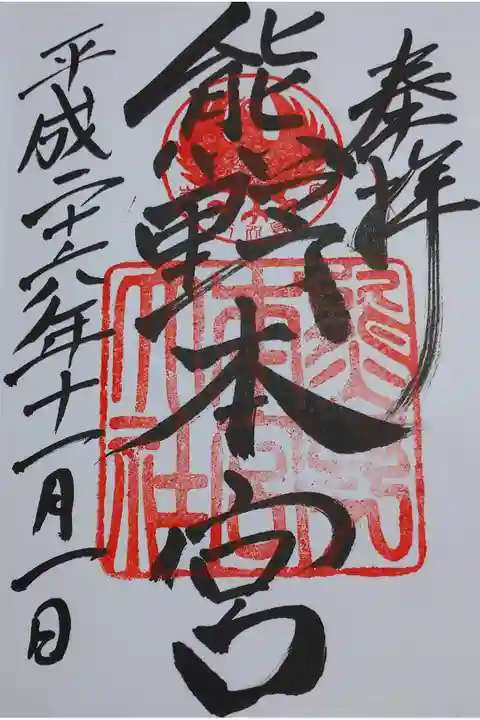 奉拝
熊野本宮
熊野
本宮
大社
平成二十六年十一月一日